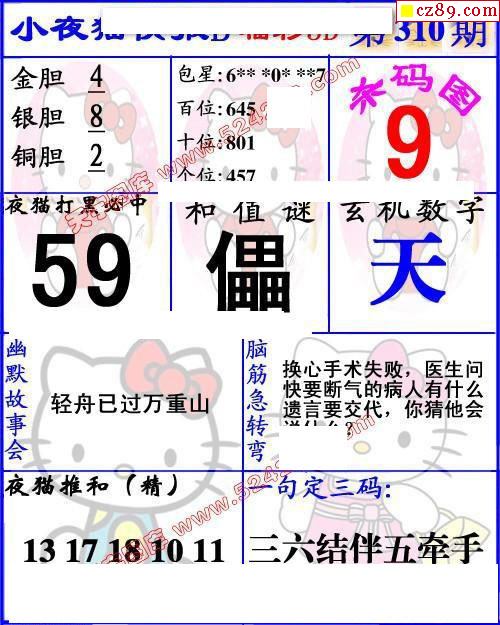 cz89.com
小夜猫
第310期
金胆 4
银胆 8
铜胆 2
包星：6** *0* **7
百位：645
十位：801
个位：457
杀码图
9
夜猫打黑必中
59
和值谜
儡
玄机数字
天
幽默故事会
轻舟已过万重山
脑筋急转弯
换心手术失败，医生问
快要断气的病人有什么
遗言要交代，你猜他会
夜猫推和（精）
13 17 18 10 11
一句定三码：
三六结伴五牵手